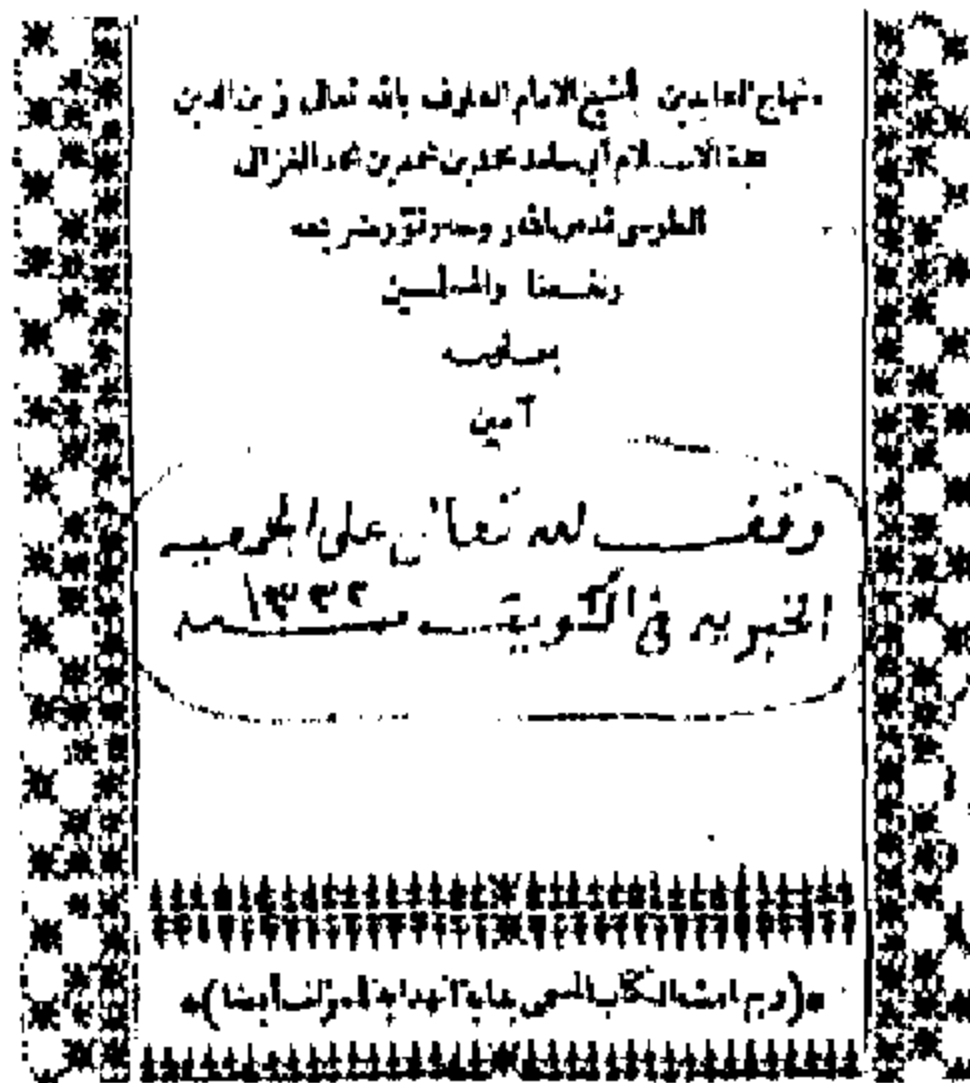 منهاج العابدين للشيخ الامام العارف بالله تعالى زين الدين
حجة الاسلام أبى حامد محمد بن محمد بن محمد الغزالى
الطوسى قدس الله روحه ونوّر ضريحه
ونفعنا والمسلمين
بعلومه
آمين
وقف لله تعالى على الجمعيه
الخيريه فى الكويت سنه ١٣٣٢
*(وبهامشه الكتاب المسمى بداية الهداية للمؤلف أيضا)*